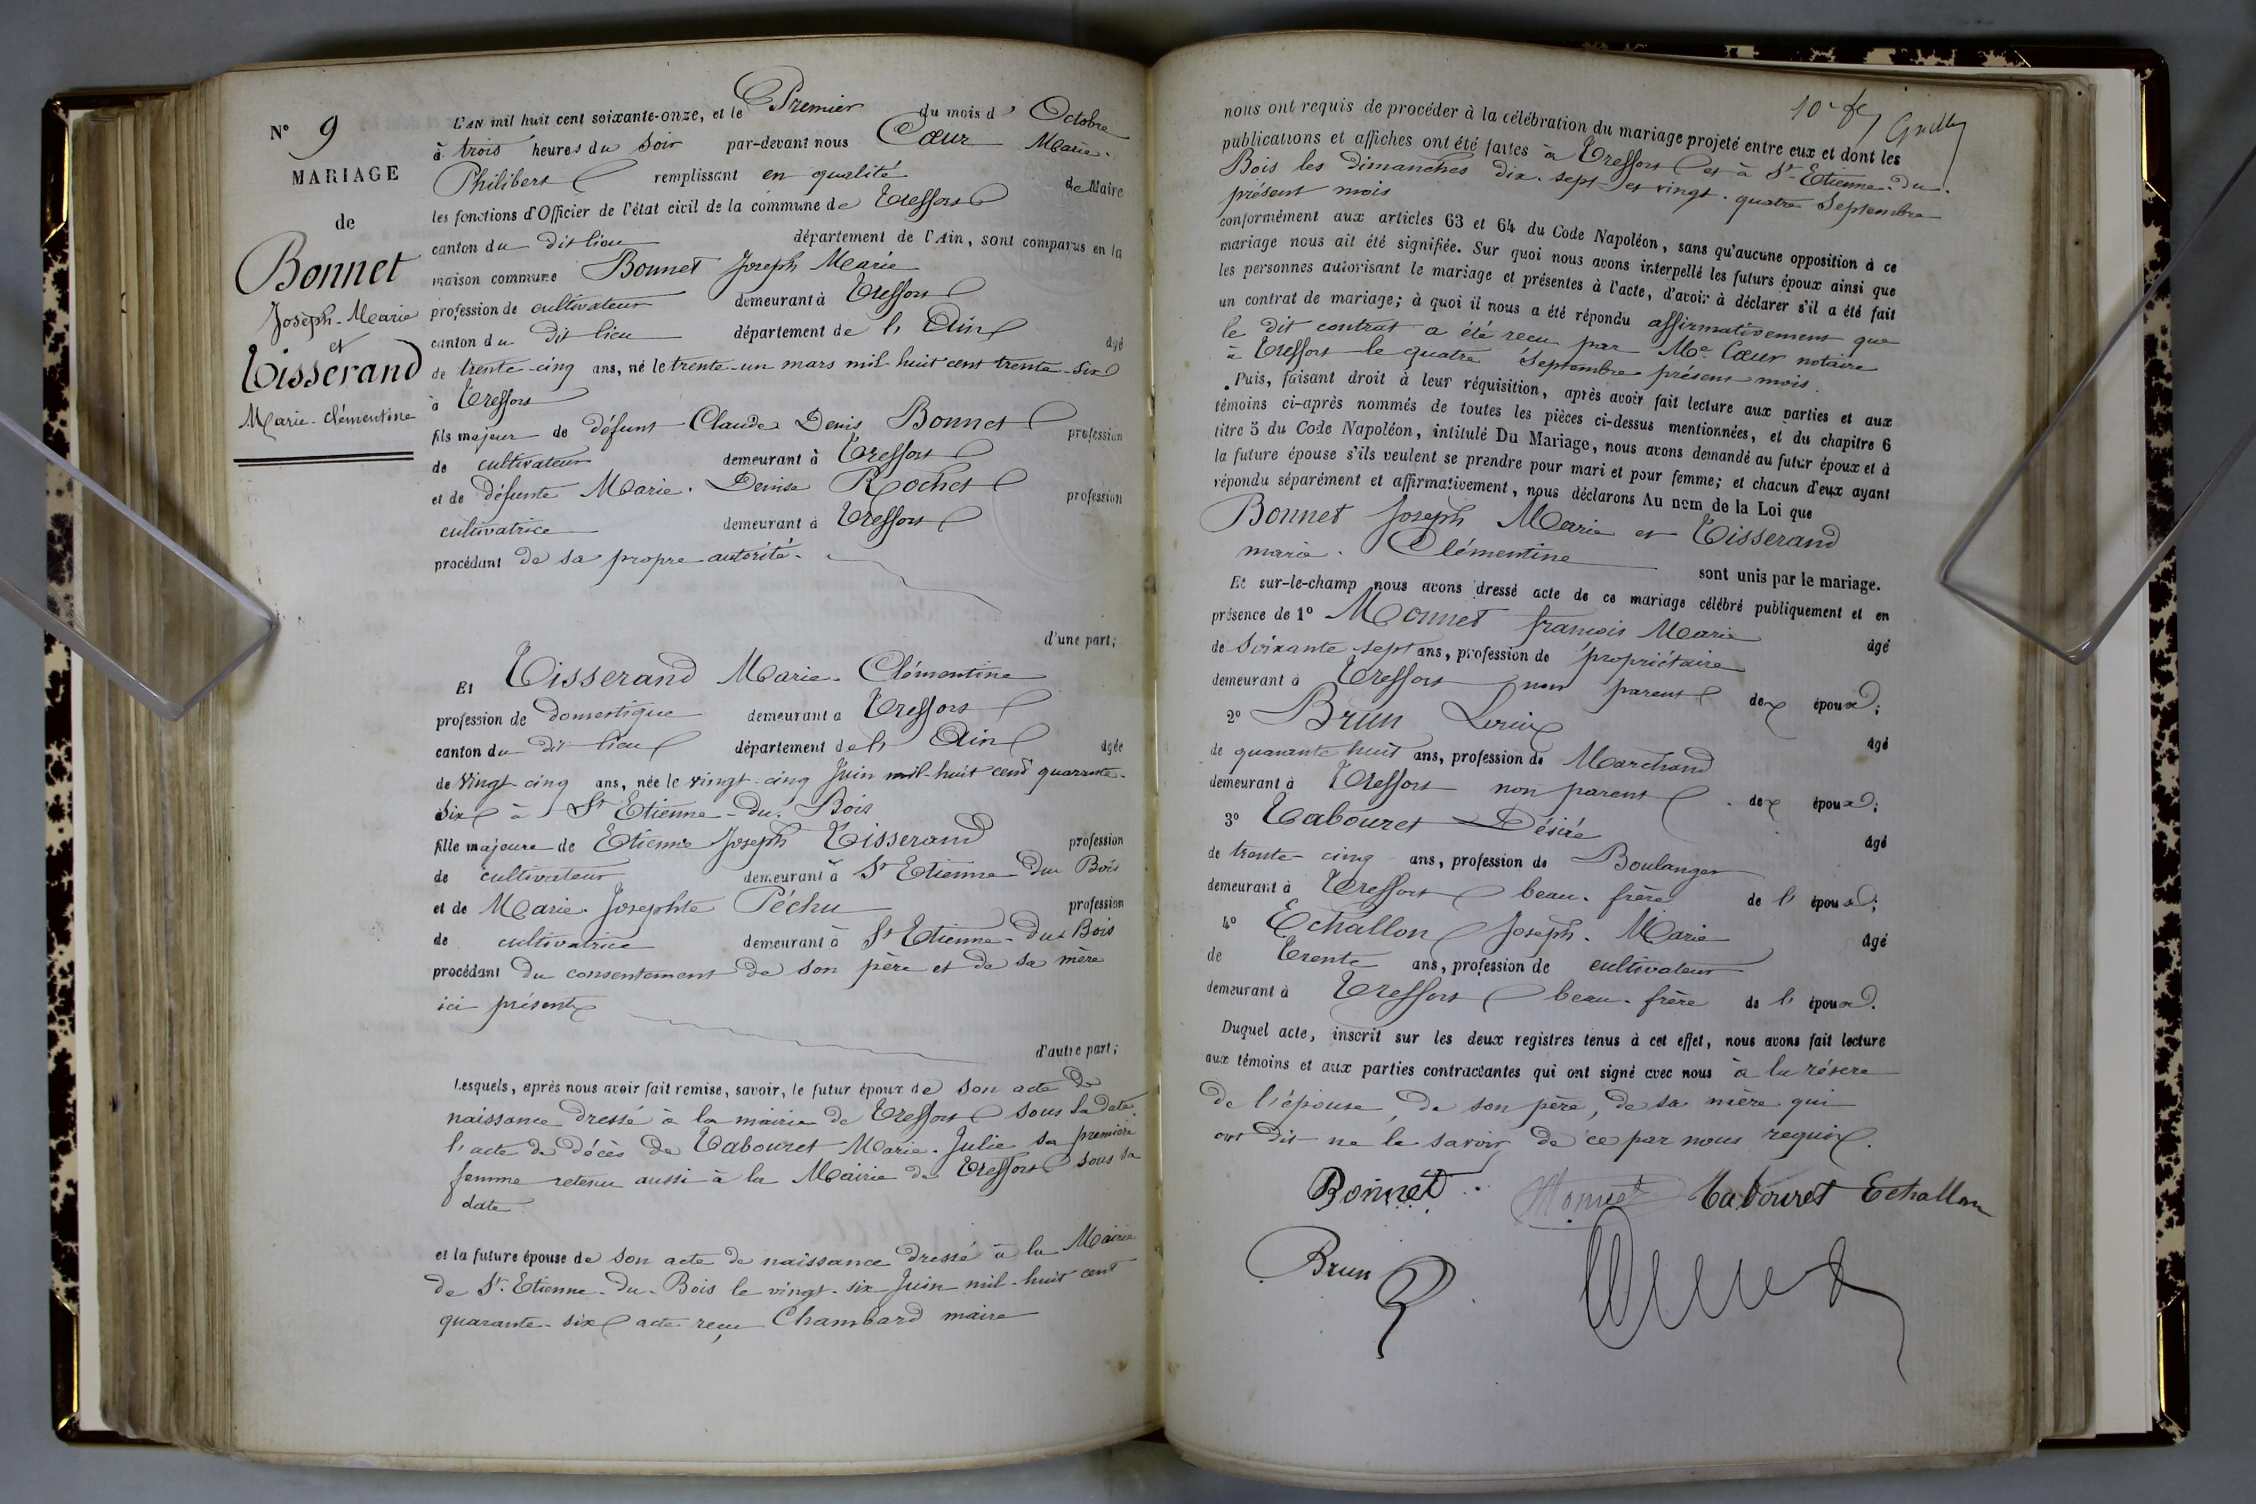 N° 9
MARIAGE
de
Bonnet
Joseph-Marie
et
Tisserand
Marie-Clémentine
L'AN mil huit cent soixante-onze, et le Premier du mois d'Octobre
à trois heures du soir par-devant nous Cœur Marie-
Philibert remplissant en qualité de Maire
les fonctions d'Officier de l'état civil de la commune de Treffort
canton du dit lieu département de l'Ain, sont comparus en la
maison commune Bonnet Joseph Marie
profession de cultivateur demeurant à Treffort
canton du dit lieu département de l'Ain âgé
de trente-cinq ans, né le trente-un mars mil-huit cent trente-six
à Treffort
fils majeur de défunt Claude Denis Bonnet profession
de cultivateur demeurant à Treffort
et de défunte Marie-Denise Rochet profession
cultivatrice demeurant à Treffort
procédant de sa propre autorité-
d'une part;
Et Tisserand Marie-Clémentine
profession de domestique demeurant à Treffort
canton du dit lieu département de l'Ain âgée
de vingt-cinq ans, née le vingt-cinq Juin mil-huit cent quarante-
six à St Etienne-du-Bois
fille majeure de Etienne Joseph Tisserand profession
de cultivateur demeurant à St Etienne du Bois
et de Marie-Josephte Péchu profession
de cultivatrice demeurant à St Etienne-du-Bois
procédant du consentement de son père et de sa mère
ici présents
d'autre part;
Lesquels, après nous avoir fait remise, savoir, le futur époux de son acte de
naissance dressé à la mairie de Treffort sous sa date.
l'acte de décès de Tabouret Marie-Julie sa première
femme retenu aussi à la Mairie de Treffort sous sa
date
et la future épouse de son acte de naissance dressé à la Mairie
de St-Etienne-du-Bois le vingt-six Juin mil-huit cent
quarante-six acte reçu Chambard maire
nous ont requis de procéder à la célébration du mariage projeté entre eux et dont les
publications et affiches ont été faites à Treffort et à St Etienne-du-
Bois les dimanches dix-sept et vingt-quatre Septembre
présent mois
conformément aux articles 63 et 64 du Code Napoléon, sans qu'aucune opposition à ce
mariage nous ait été signifiée. Sur quoi nous avons interpellé les futurs époux ainsi que
les personnes autorisant le mariage et présentes à l'acte, d'avoir à déclarer s'il a été fait
un contrat de mariage; à quoi il nous a été répondu affirmativement que
le dit contrat a été reçu par Me Cœur notaire
à Treffort le quatre Septembre présent mois.
Puis, faisant droit à leur réquisition, après avoir fait lecture aux parties et aux
témoins ci-après nommés de toutes les pièces ci-dessus mentionnées, et du chapitre 6
titre 5 du Code Napoléon, intitulé Du Mariage, nous avons demandé au futur époux et à
la future épouse s'ils veulent se prendre pour mari et pour femme; et chacun d'eux ayant
répondu séparément et affirmativement, nous déclarons Au nom de la Loi que
Bonnet Joseph Marie et Tisserand
marie-Clémentine sont unis par le mariage.
Et sur-le-champ nous avons dressé acte de ce mariage célébré publiquement et en
présence de 1° Monnet françois Marie âgé
de soixante sept ans, profession de propriétaire
demeurant à Treffort non parent des époux;
2° Brun âgé
de quarante huit ans, profession de Marchand
demeurant à Treffort non parent des époux;
3° Tabouret Désiré âgé
de trente-cinq ans, profession de Boulanger
demeurant à Treffort beau-frère de l'époux;
4° Echallon Joseph-Marie âgé
de Trente ans, profession de cultivateur
demeurant à Treffort beau-frère de l'époux.
Duquel acte, inscrit sur les deux registres tenus à cet effet, nous avons fait lecture
aux témoins et aux parties contractantes qui ont signé avec nous à la résere
de l'épouse, de son père, de sa mère qui
ont dit ne le savoir de ce par nous requis.
Bonnet Monnet Tabouret Echallon
Brun